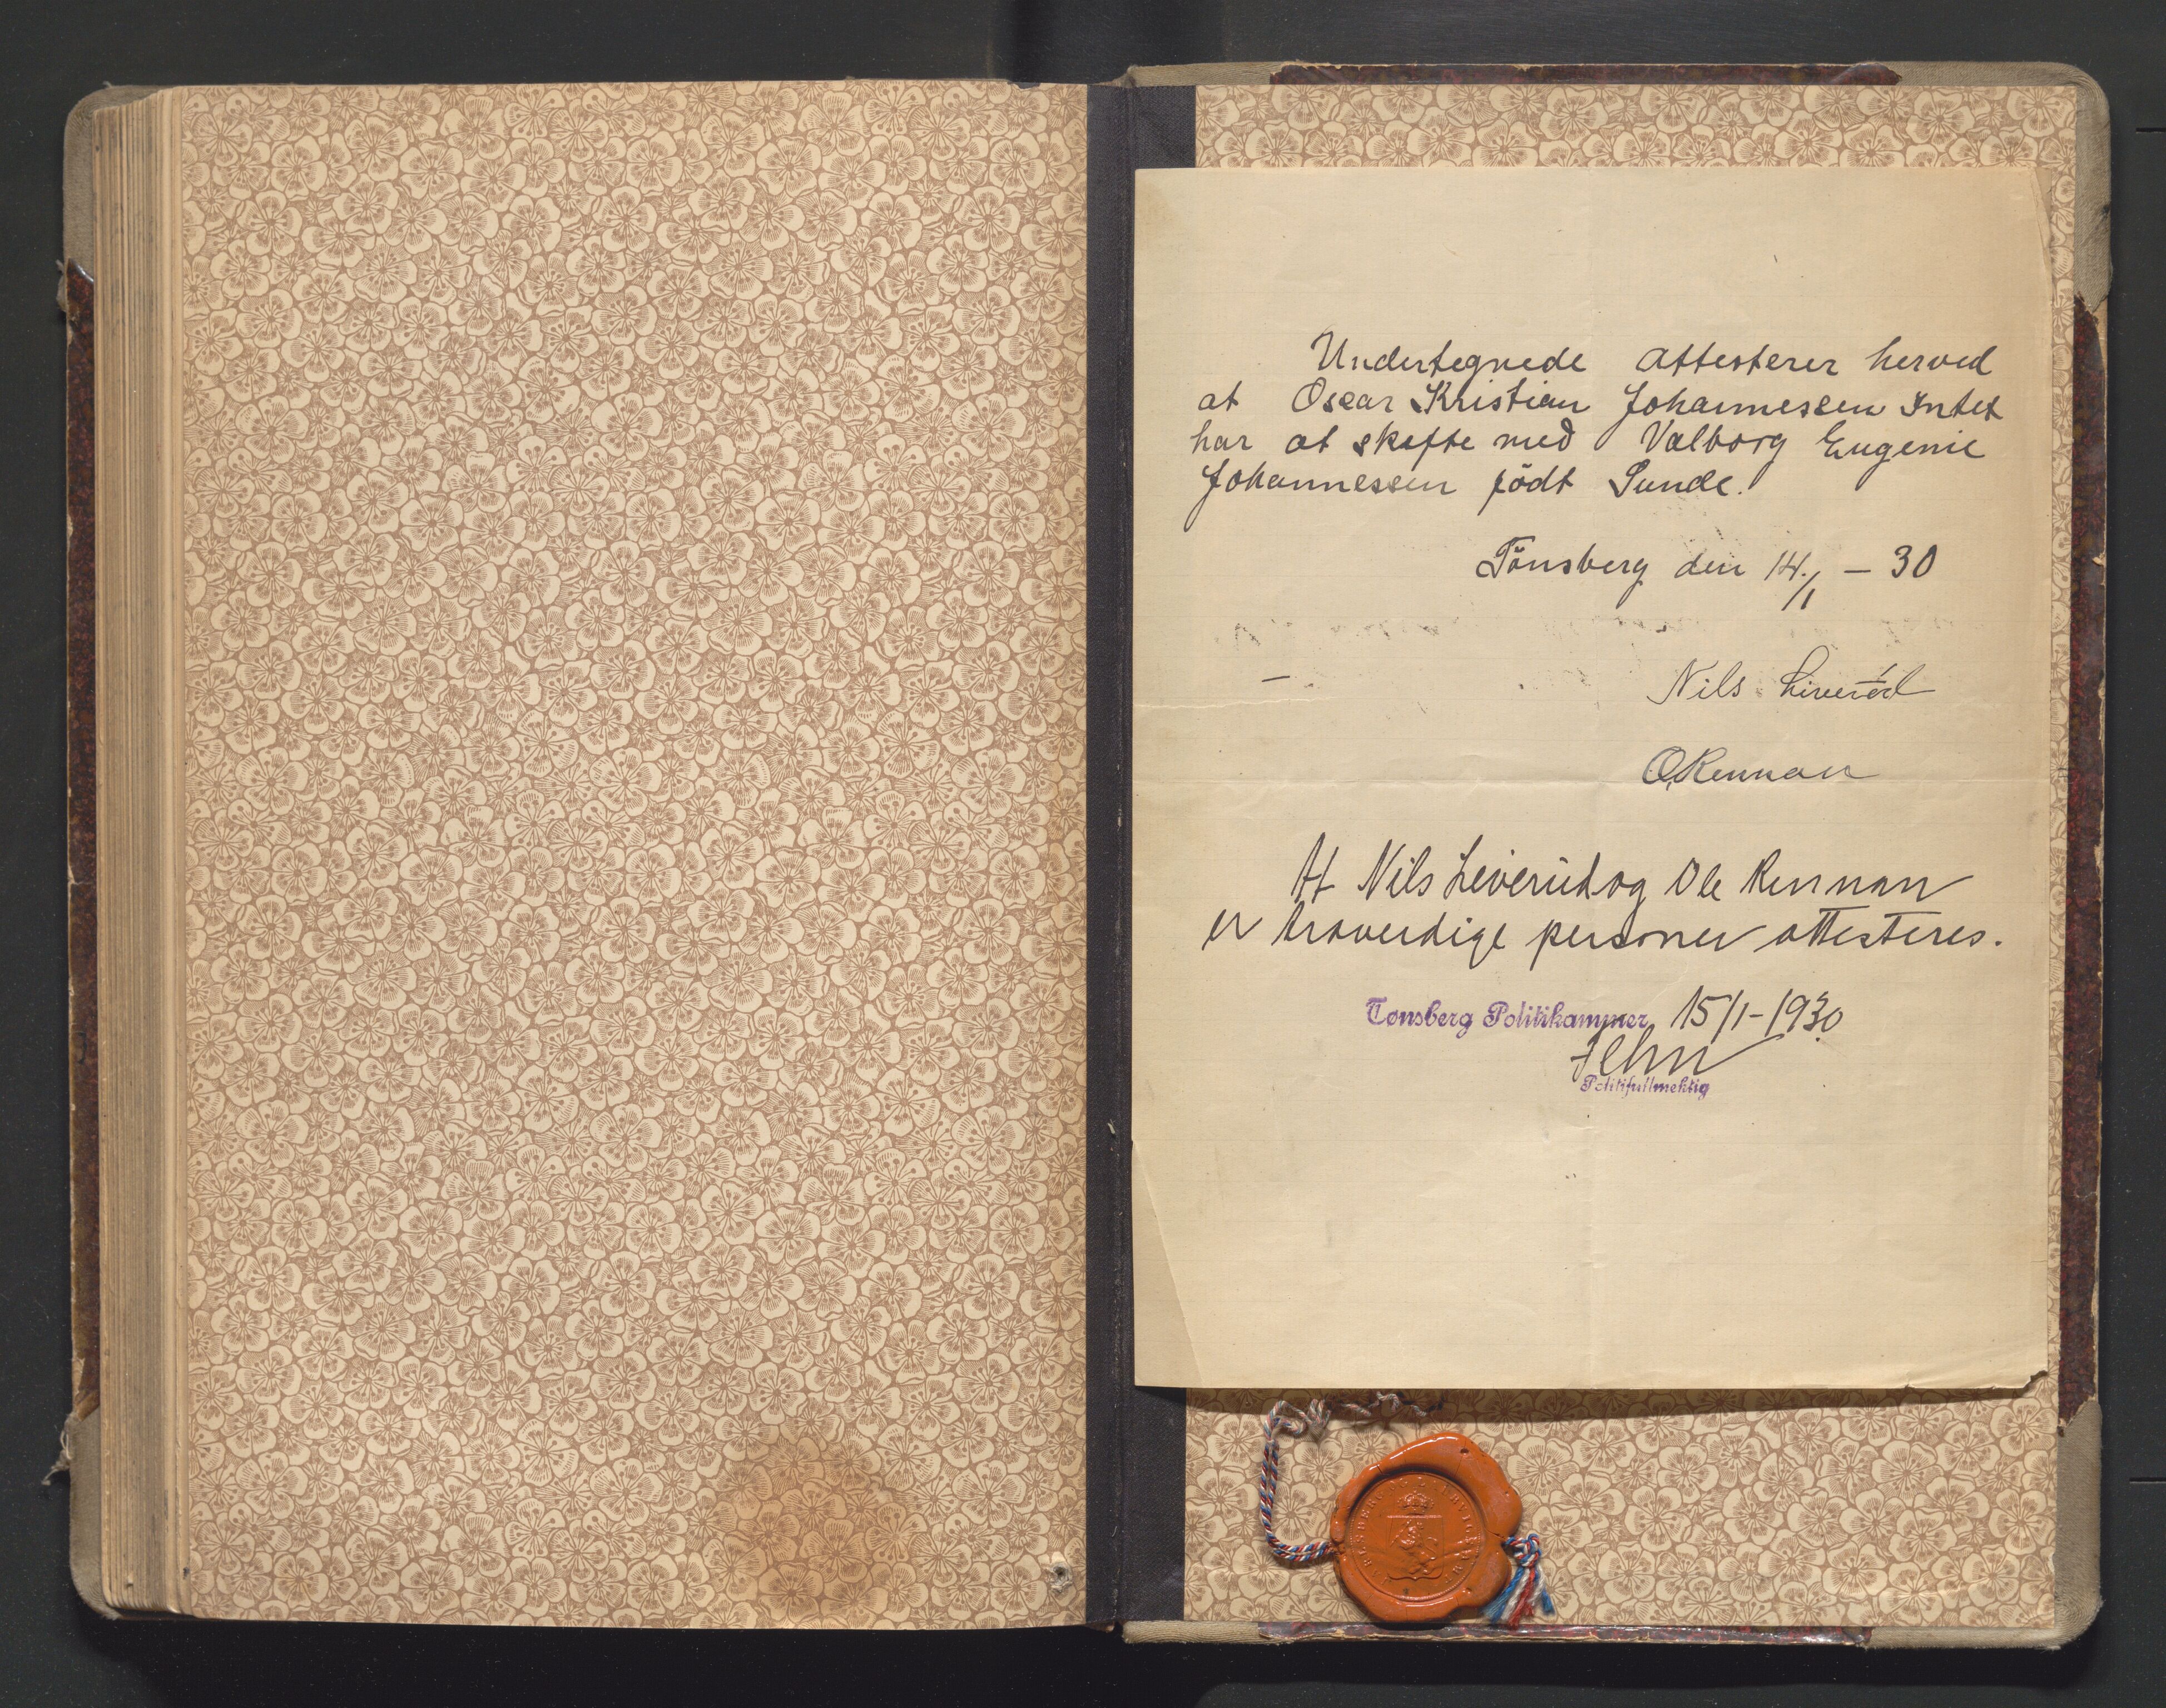 Undertegnede attesterer herved
at Oscar Kristian Johannessen Intet
har at skifte med Valborg Eugenie
Johannessen födt Sunde.
Tönsberg den 14./1 – 30
Nils Liveröd
O. Rennan
At Nils Liveröd og Ole Rennan
er troverdige personer attesteres.
Tønsberg Politikammer 15/1-1930
Politifullmektig